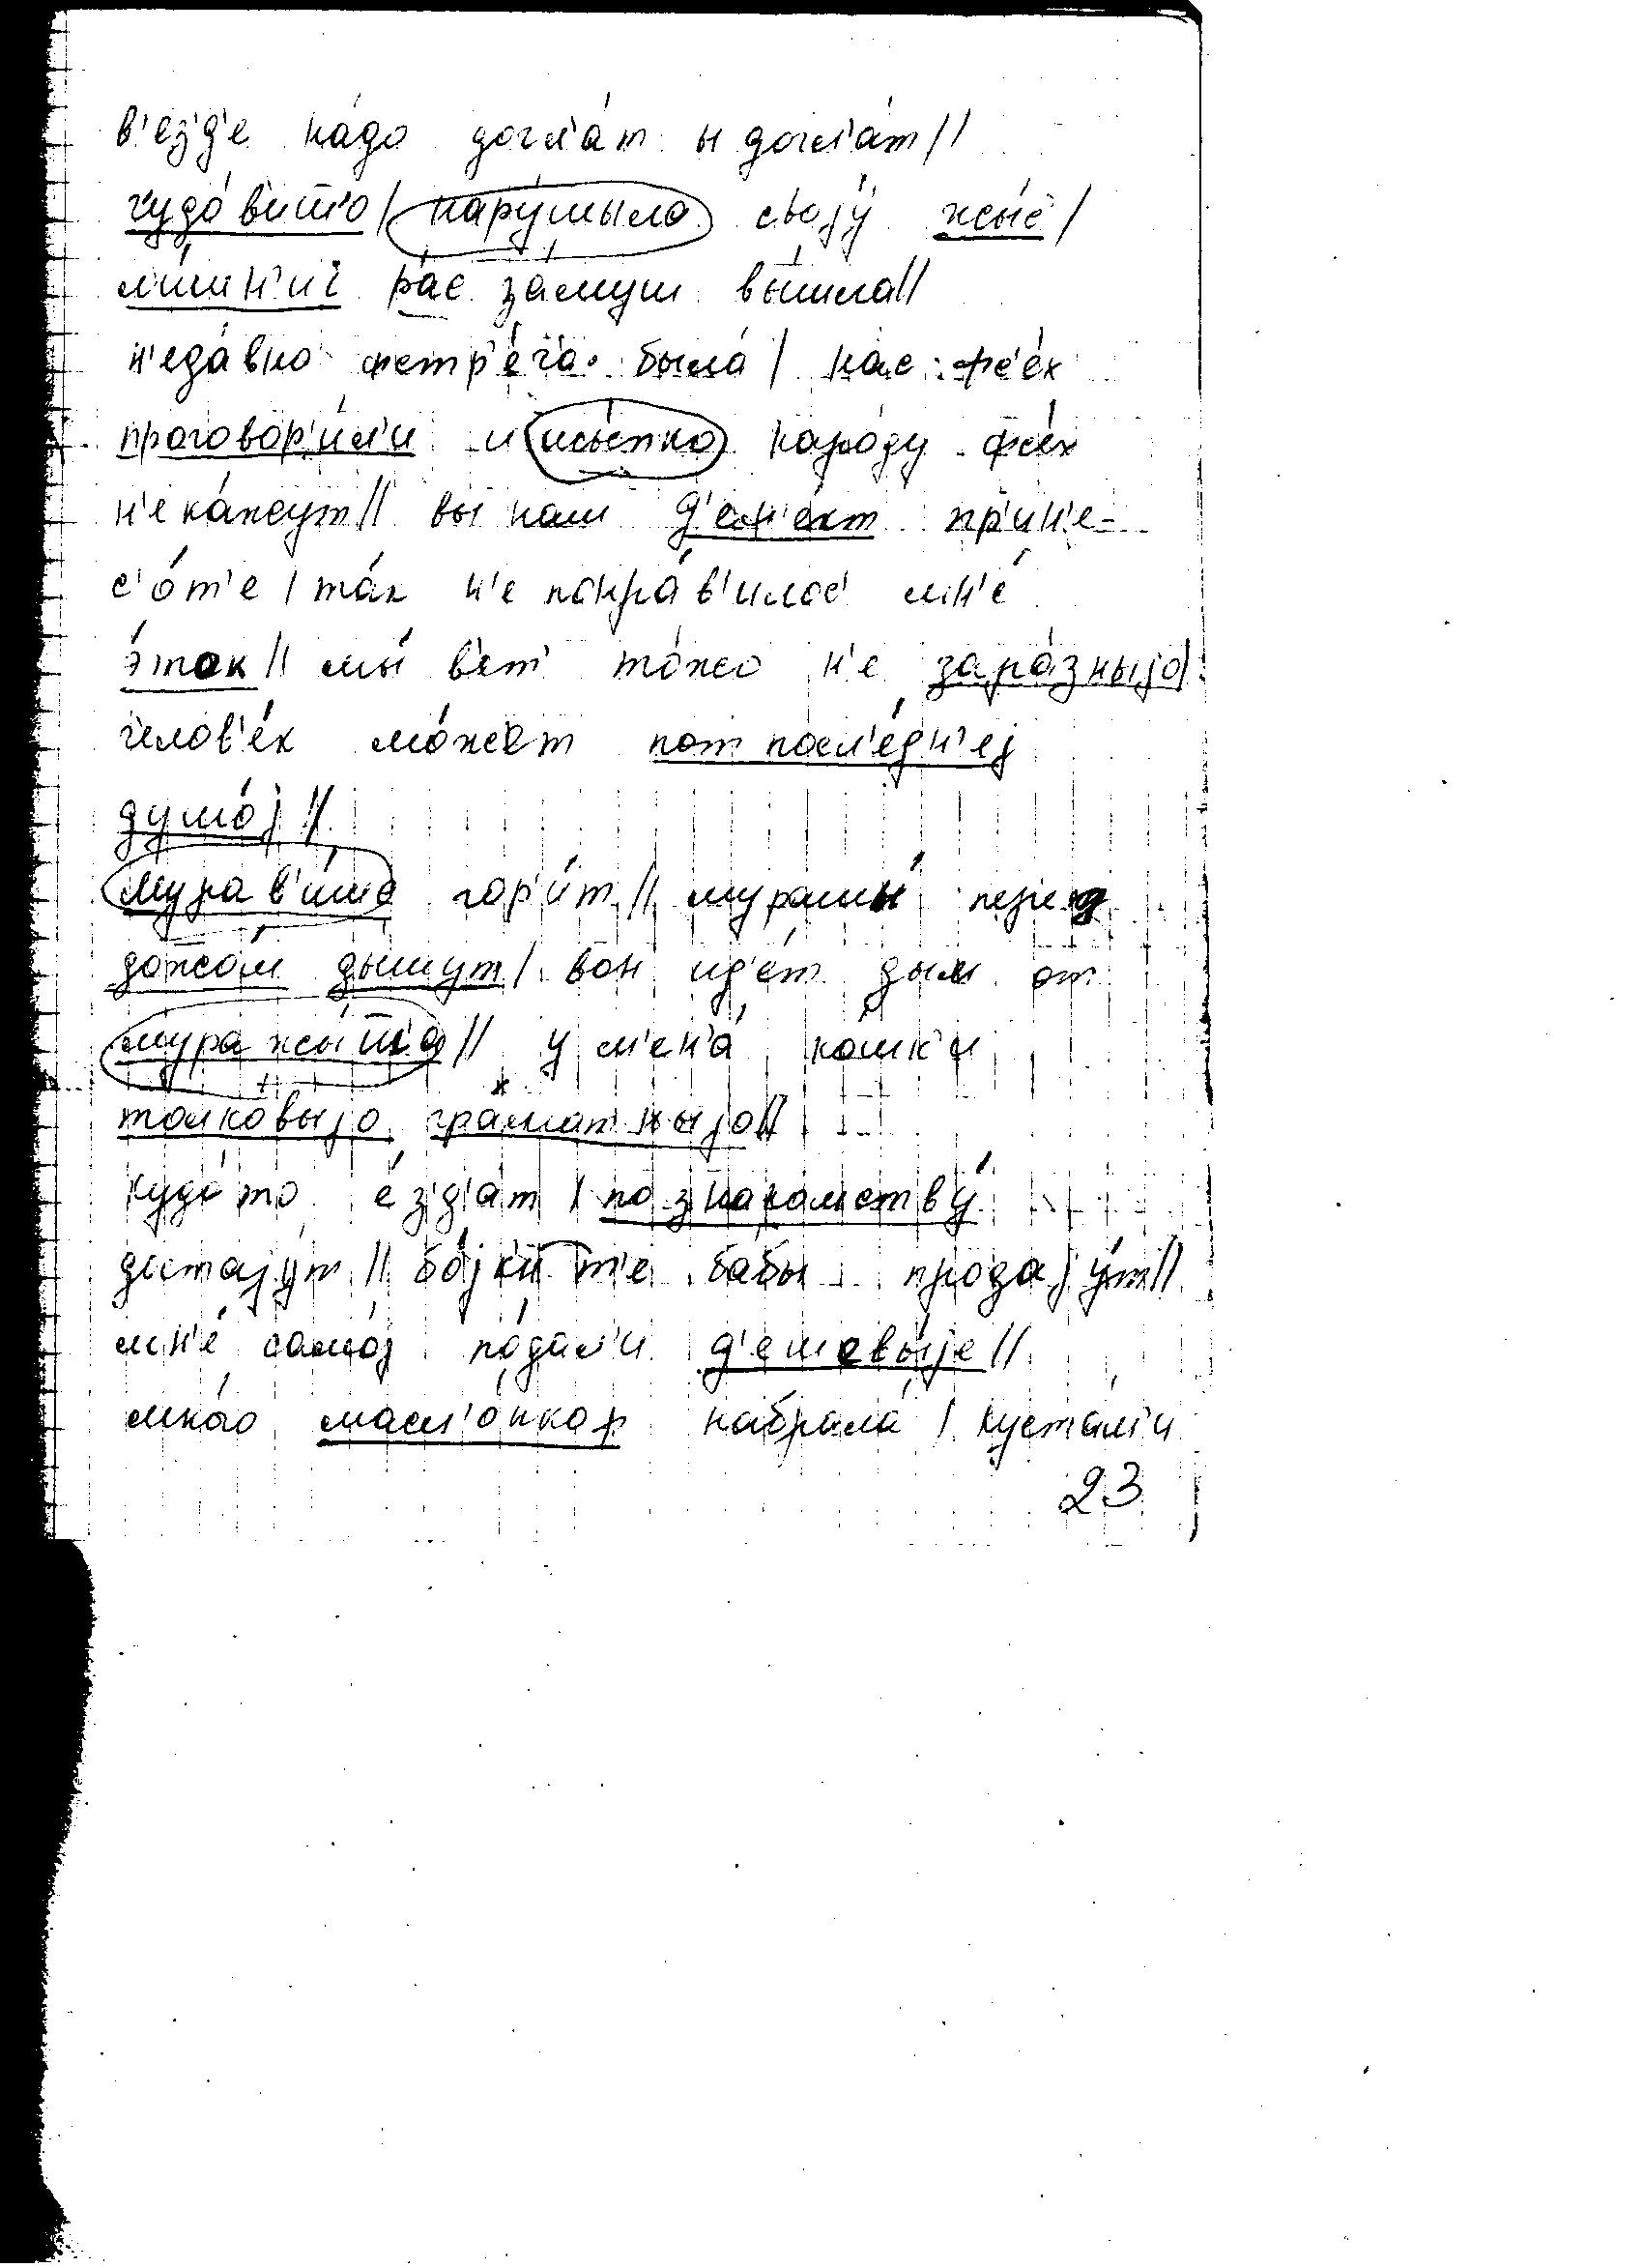 в'ез'д'е на́до догл'а́т и догл'а́т//
чудо́в'ишшо/ нару́шыла своjу́ жыс'/
л'и́шн'иǐ ра́с за́муш вы́шла//
н'еда́вно фстр'е́ча была́/ нас фс'е́х
проговор'и́л'и и шы́пко наро́ду фс'ех
н'ека́жут// вы нам д'ел'е́кт пр'ин'е-
с'о́т'е/ та́к н'е понра́в'илос' мн'е́
э́так// мы́ в'ет' то́жо н'е зара́зныjо/
челов'е́к мо́жет пот посл'е́дн'еj
душо́j//
мура́в'ише гор'и́т// мурашы́ перед
дожо́м ды́шут/ вон ид'е́т дым от
муражы́шша// у м'ен'а́ кошк'и
толко́выjо гра́матныjо//
куда́то е́з'д'ат/ по знакомству́
дитаjу́т// бо́jки т'е бабы продаjу́т//
мн'е́ само́j по́дал'и д'ешевы́jе//
мно́го масл'о́нкоф набрала́/ куста́м'и
23